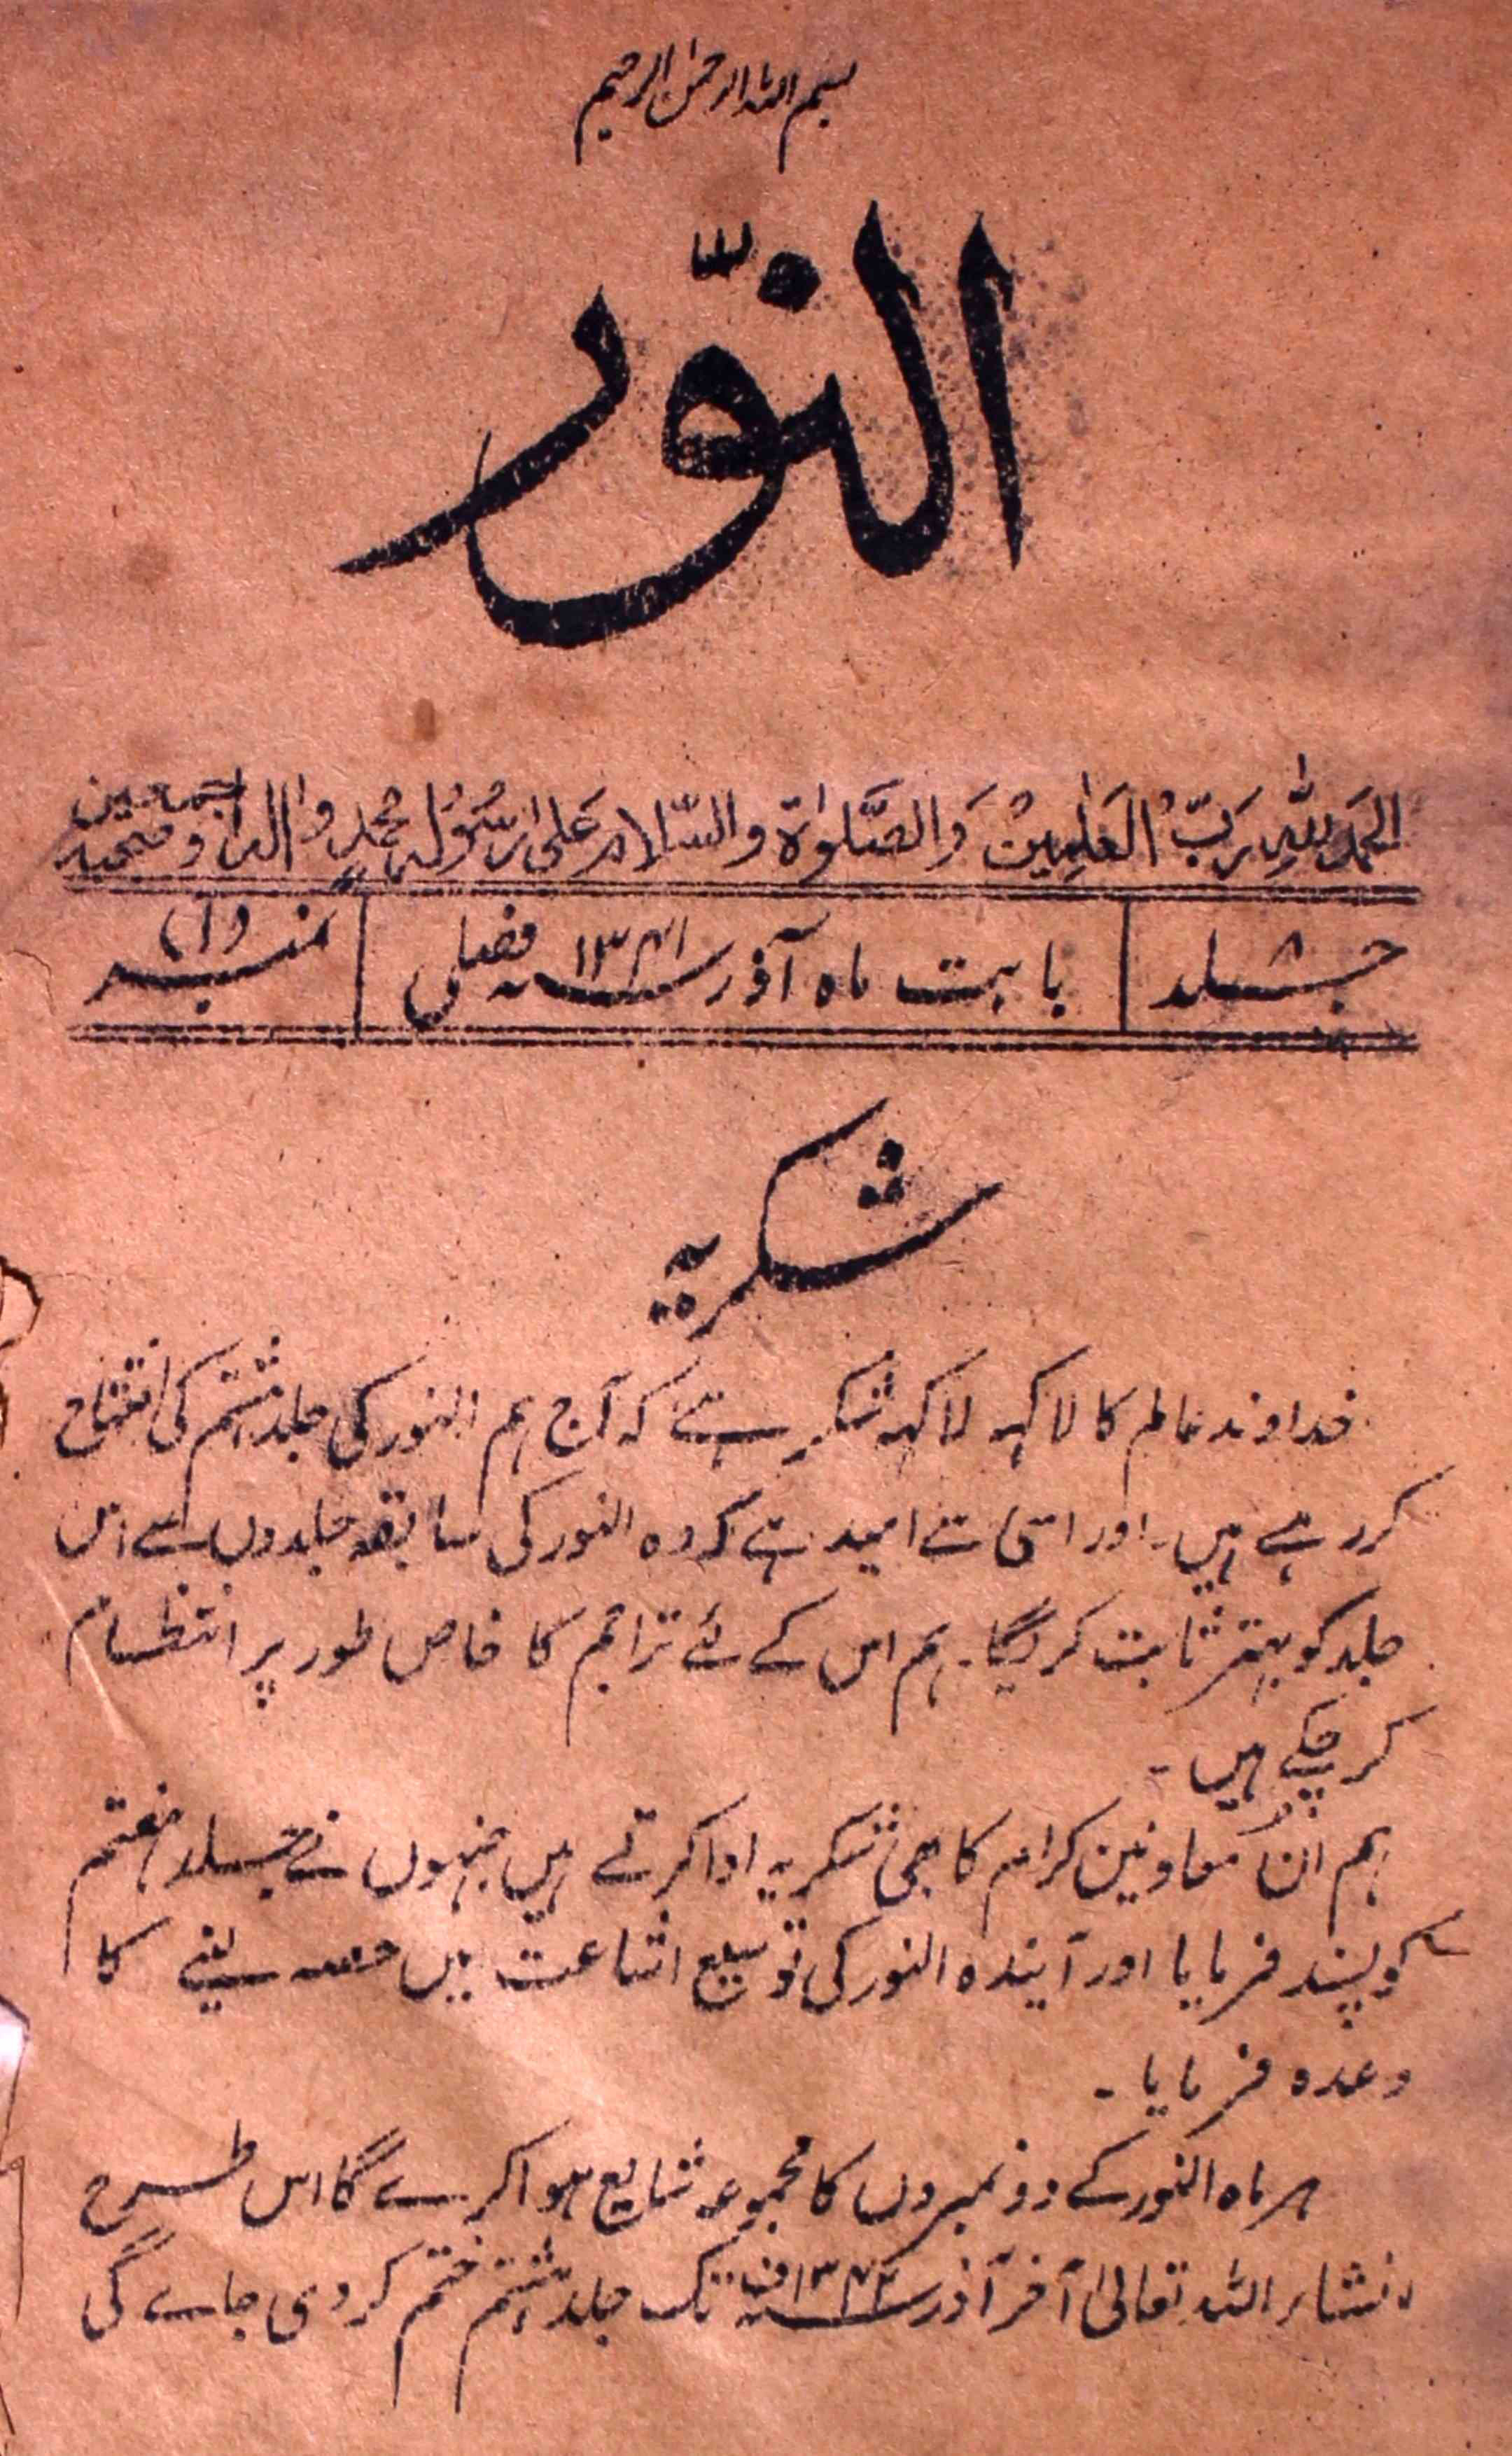 بسم اللہ الرحمن الرحیم
النّور
الحمد للہ رب العٰلمین والصّلوٰة والسّلام علیٰ رسولہ محمد واٰلہ وصحبہ اجمعین
جلد ۸ | بابت ماہ آذر ۱۳۴۱؁ فصلی | نمبر (۱)
شکریہ
خداوند عالم کا لاکہہ لاکہہ شکر ہے کہ آج ہم النور کی جلد ہشتم کی افتتاح
کر رہے ہیں۔ اور اسی سے امید ہے کہ وہ النور کی سابقہ جلدوں سے اس
جلد کو بہتر ثابت کریگا۔ ہم اس کے لئے تراجم کا خاص طور پر انتظام
کر چکے ہیں۔
ہم ان معاونین کرام کا بھی شکریہ ادا کرتے ہیں جنہوں نے جلد ہفتم
کو پسند فرمایا اور آیندہ النور کی توسیع اشاعت میں حصہ لینے کا
وعدہ فرمایا۔
ہر ماہ النور کے دو نمبروں کا مجموعہ شایع ہوا کرے گا اس طرح
انشاء اللہ تعالیٰ آخر آذر ۱۳۴۲؁ف تک جلد ہشتم ختم کردی جاے گی